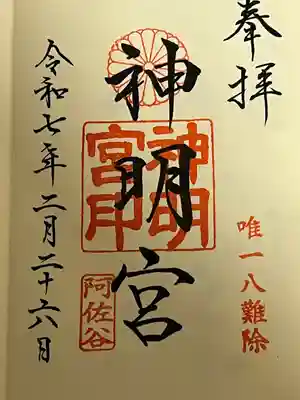 奉拝
唯一八難除
神明宮
神明宮印
阿佐谷
令和七年二月二十六日